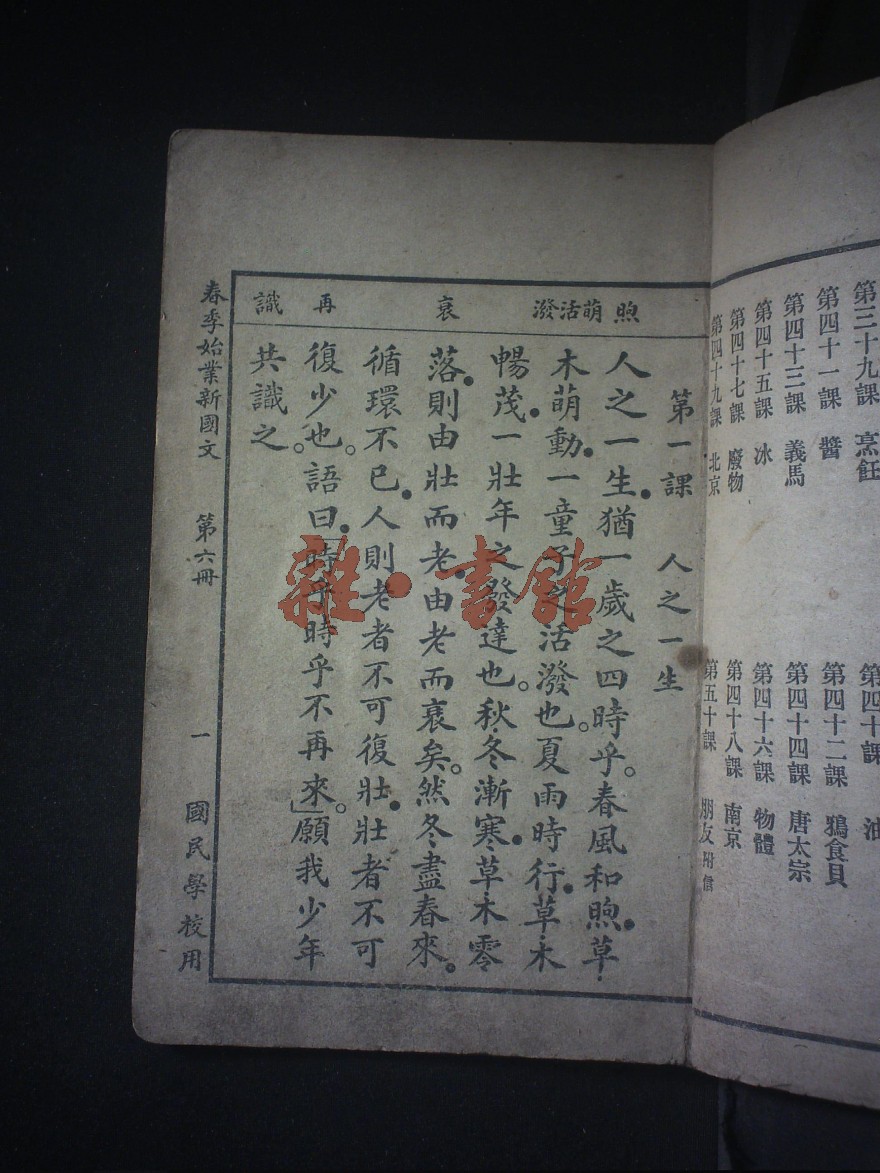 第三十九課 烹飪
第四十課 油
第四十一課 醬
第四十二課 鴉食貝
第四十三課 義馬
第四十四課 唐太宗
第四十五課 冰
第四十六課 物體
第四十七課 廢物
第四十八課 南京
第四十九課 北京
第五十課 朋友 附信
煦 萌 活潑 衰 再 識
第一課 人之一生
人之一生。猶一歲之四時乎。春風和煦。草
木萌動。一童子之活潑也。夏雨時行。草木
暢茂。一壯年之發達也。秋冬漸寒。草木零
落。則由壯而老。由老而衰矣。然冬盡春來。
循環不已。人則老者不可復壯。壯者不可
復少也。語曰。「時乎時乎不再來。」願我少年
共識之。
春季始業新國文 第六冊 一 國民學校用
雜·書館